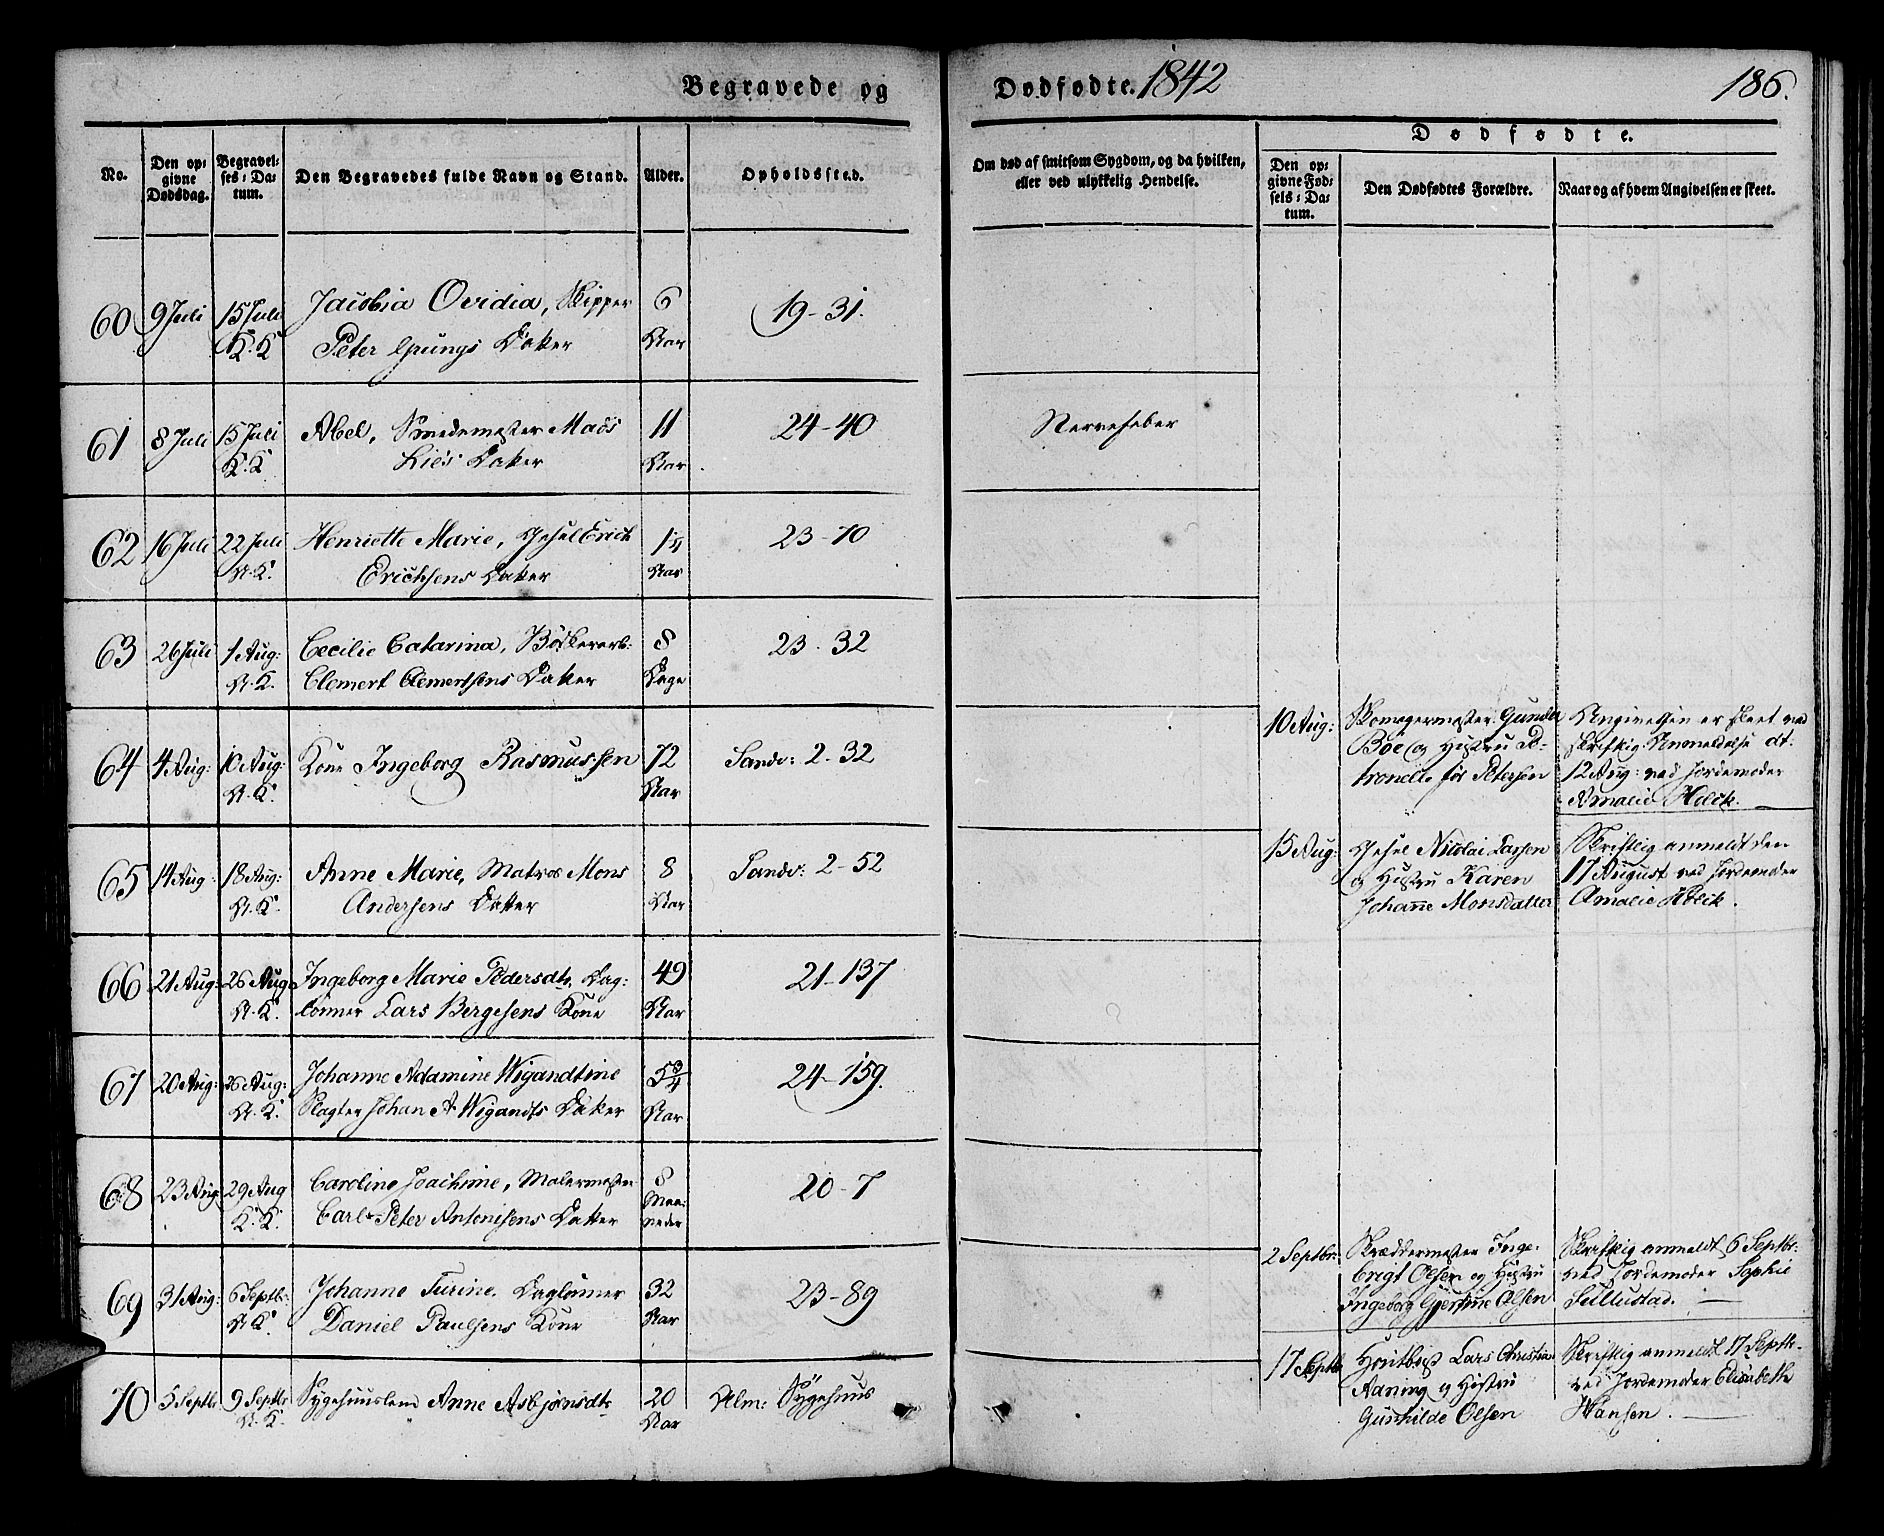 Begravede og Dødfødte. 1842
186.
No.
Den opgivne Dødsdag.
Begravelses-Datum.
Den Begravedes fulde Navn og Stand.
Alder.
Opholdssted.
Om død af smitsom Sygdom, og da hvilken, eller ved ulykkelig Hendelse.
Dødfødte.
Den opgivne Fødsels-Datum.
Den Dødfødtes Forældre.
Naar og af hvem Angivelsen er skeet.
60 9 Juli 15 Juli Jacobia Ovidia, Skipper 6 19-31.
K. K Peter Datter Aar
61 8 Juli 15 Juli Abel, Smedemester Mads 11 24-40 Nervefeber
K. K Lies Datter Aar
62 16 Juli 22 Juli Henriette Marie, Erich 1¼ 23-70
N. K. Erichsens Datter Aar
63 26 Juli 1 Aug: Cecilie Catarina, Bødkerarb: 8 23-32
N. K. Clemert Clemertsens Datter Dage
64 4 Aug: 10 Aug: Kone Ingeborg Rasmussen 72 Sandv: 2-32
N. K. Aar
10 Aug: Skomagermester Gunder Angivelsen er skeet ved
Böe og Hustru Pe- skriftlig Anmeldelse dt:
tronelle før Petersen 12 Aug: ved Jordemoder
Amalie Holck.
65 14 Aug: 18 Aug: Anne Marie, Matros Mons 8 Sandv: 2-52
N. K. Andersens Datter Aar
15 Aug: Nicolai Lassen Skriftlig anmeldt den
og Hustru Karen 17 August ved Jordemoder
Johanne Monsdatter Amalie Holck.
66 21 Aug: 26 Aug Ingeborg Marie Pedersdt., Dag- 49 21-137
N. K. lønner Lars Bergesens Kone Aar
67 20 Aug: 26 Aug: Johanne Adamine Wigandtine 5¾ 24-159.
N. K. Slagter Johan A Wigandts Datter Aar
68 23 Aug 29 Aug Caroline Joachime, Malermester 8 20-7
K. K. Carl Peter Antonisens Datter Maaneder
69 31 Aug: 6 Septbr: Johanne Turine, Daglönner 32 23-89
N. K. Daniel Paulsens Kone Aar
2 Septbr: Skræddermester Inge- Skriftlig anmeldt 6 Septbr:
brigt Olsen og Hustru ved Jordemoder Sophie
Ingeborg Gjertine Olsen
70 5 Septbr 9 Septbr Sygehuuslem Anne Asbjørnsdtr 20 Alm: Sygehuus
N. K. Aar
17 Septbr Lars Christian Skriftlig anmeldt 17 Septbr.
Aaning og Hustru ved Jordemoder Elisabeth
Gunhilde Olsen Hansen.